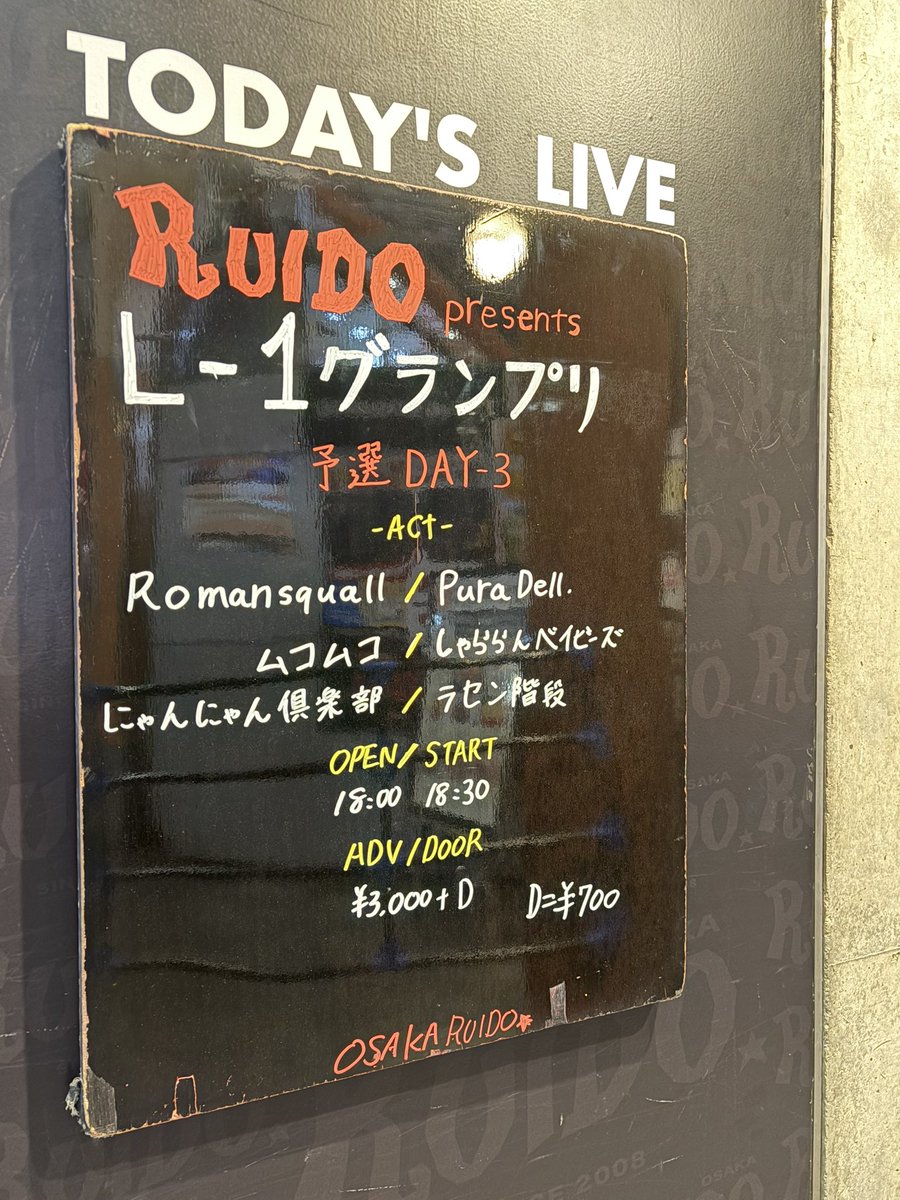 TODAY'S LIVE
RUIDO presents
L-1グランプリ
予選 DAY-3
-ACt-
Romansquall / Pura Dell.
ムコムコ / しゃららんベイビーズ
にゃんにゃん倶楽部 / ラセン階段
OPEN/START
18:00 18:30
ADV/DOOR
¥3,000+D D=¥700
OSAKA RUIDO